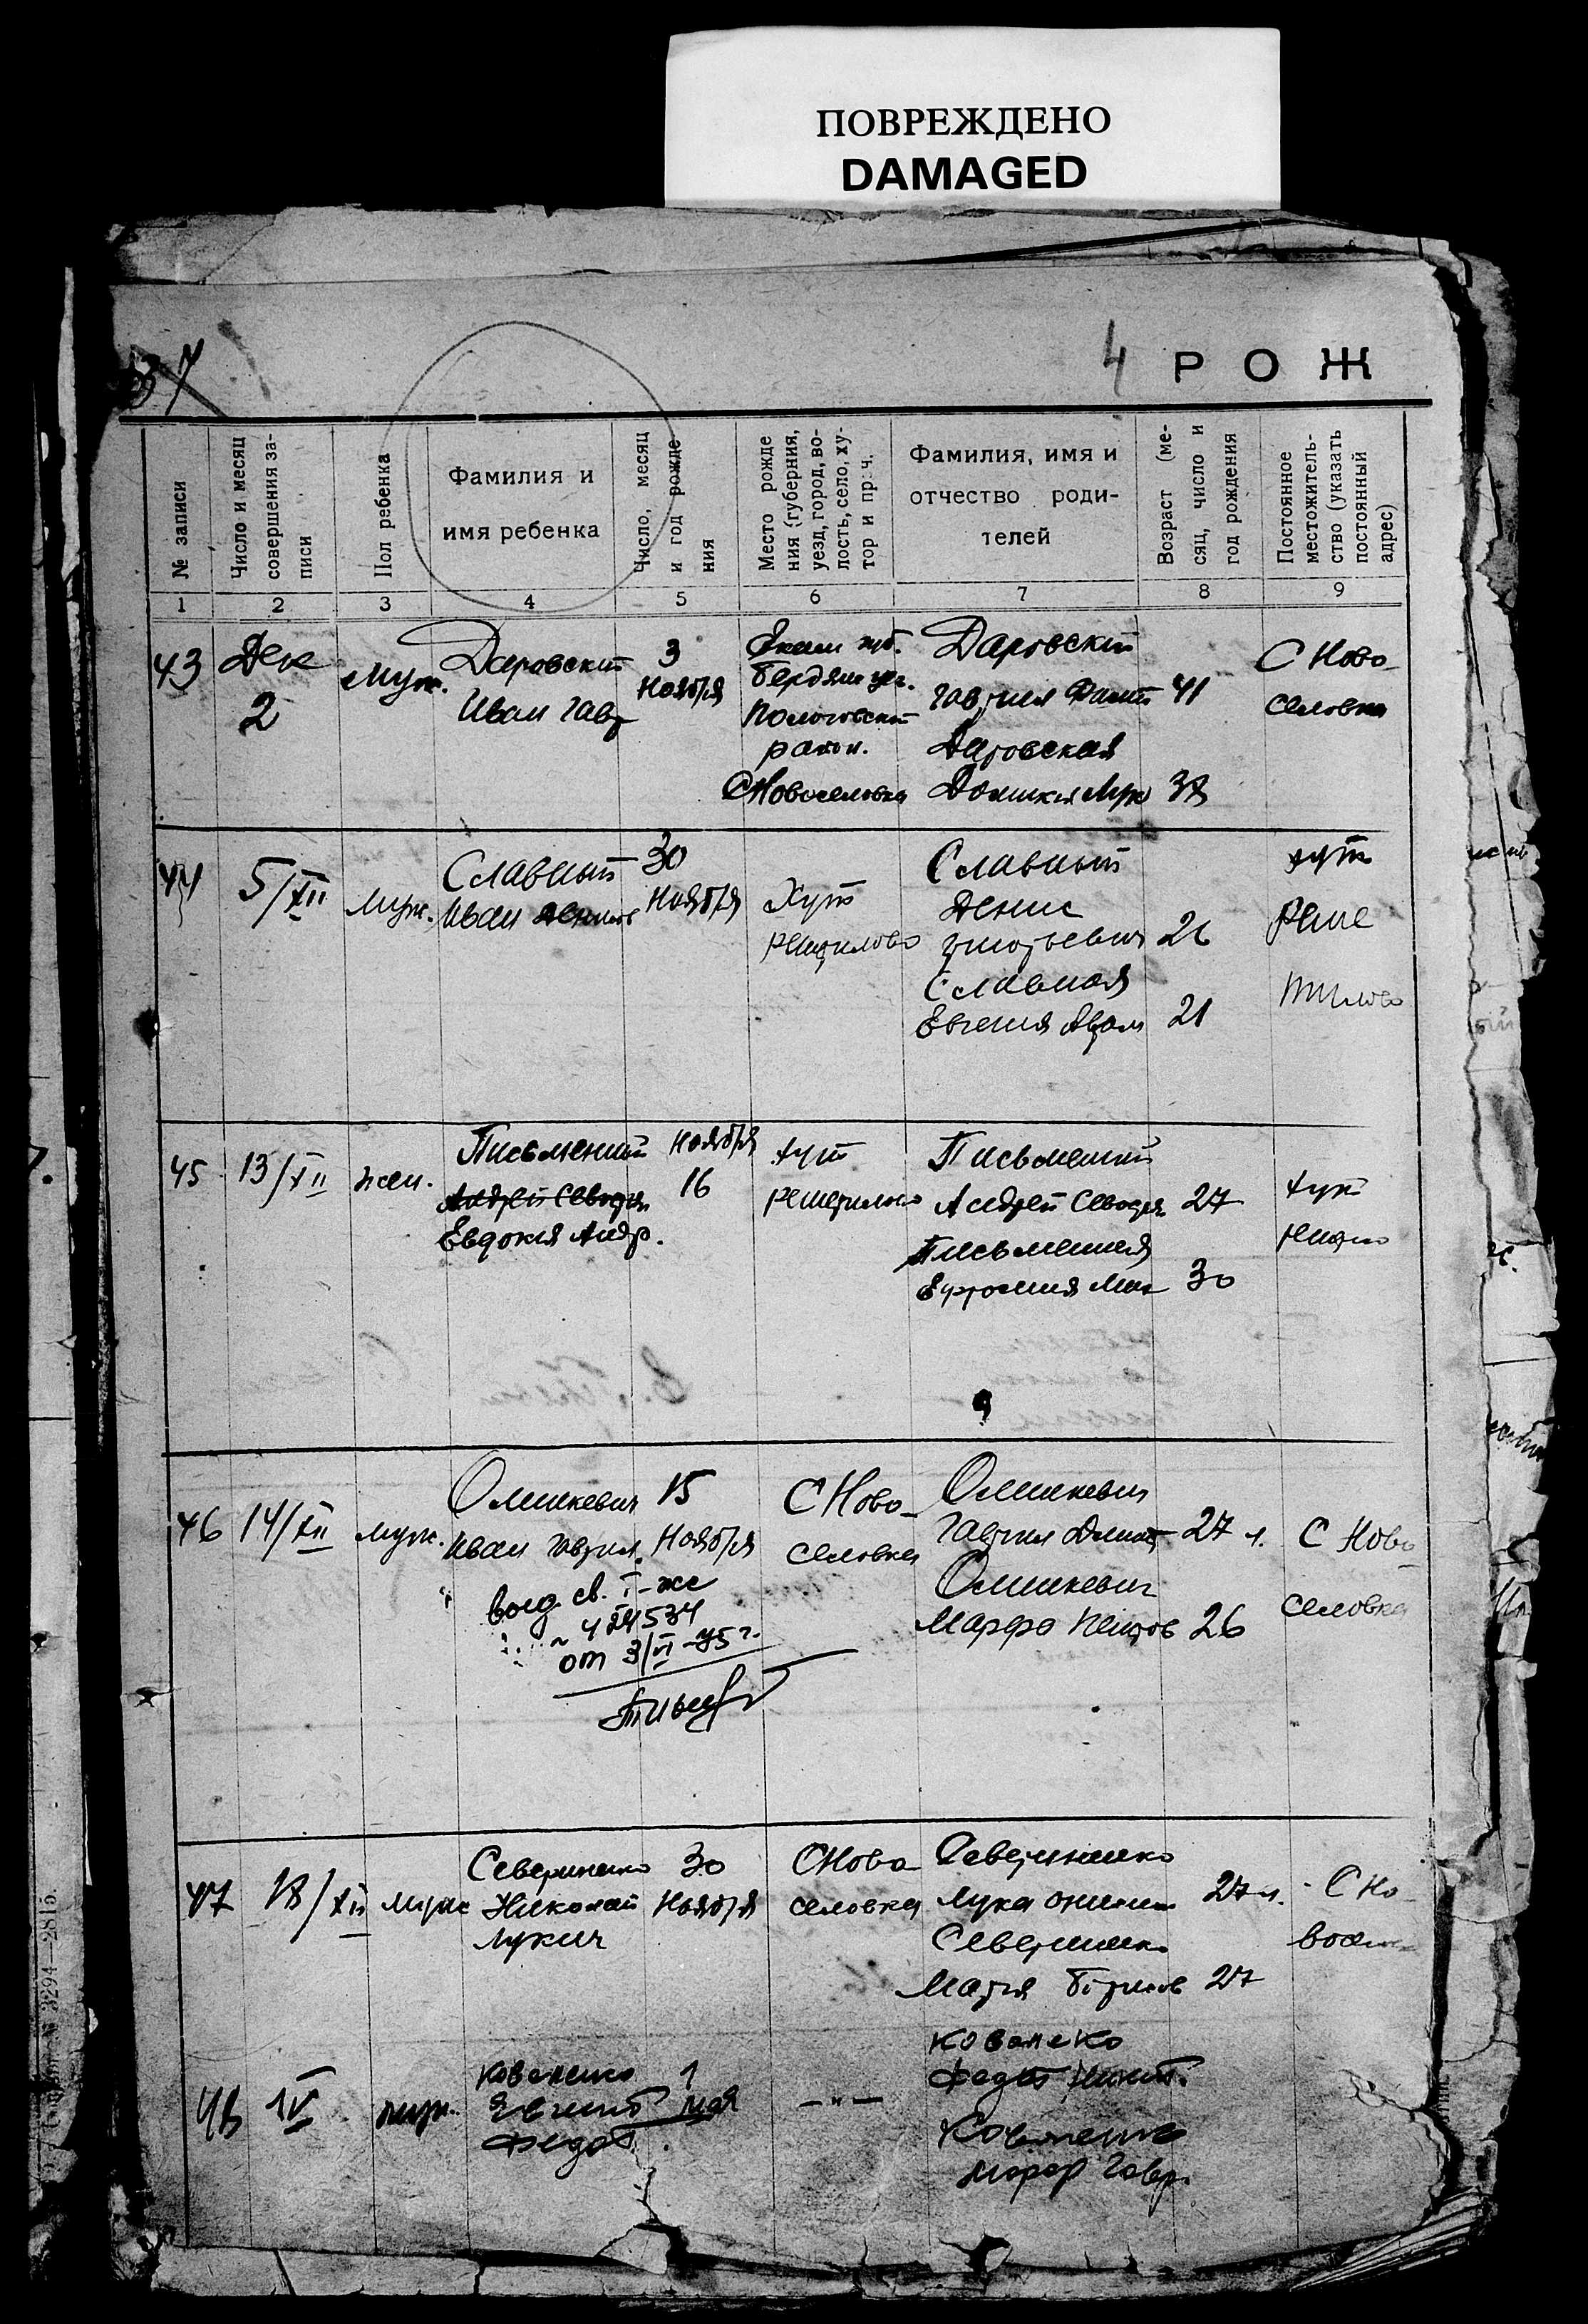 ПОВРЕЖДЕНО
DAMAGED
37
4 РОЖ
№ записи
Число и месяц
совершения за-
писи
Пол ребенка
Фамилия и
имя ребенка
Число, месяц
и год рожде
ния
Место рожде
ния (губерния,
уезд, город, во-
лость, село, ху-
тор и проч.
Фамилия, имя и
отчество роди-
телей
Возраст (ме-
сяц, число и
год рождения
Постоянное
местожитель-
ство (указать
постоянный
адрес)
1 2 3 4 5 6 7 8 9
43
Дек
2
Муж.
Даровский
Иван Гавр
3
Ноября
Екат губ.
Бердян уез.
Пологовский
район.
С Новоселовка
Даровский
Гаврил Дмит 41
Даровская
Домникия Лук 38
С Ново-
селовка
44
5/XII
Муж.
Славный
Иван Денисов
30
Ноября
Хут
Решетилово
Славный
Денис
Григорьевич 26
Славная
Евгения Абрам 21
хут
Реше
тилово
45
13/XII
жен.
Письменный
Андрей
Евдокия Андр.
Ноября
16
хут
решетилово
Письменный
Андрей 27
Письменная
Ефросиния 30
хут
46
14/XII
муж.
Олешкевич
Иван Гаврил.
15
Ноября
С Ново-
селовка
Олешкевич
Гаврил Дмит 27 л.
Олешкевич
Марфа Петров 26
С Ново
селовка
выд. св. I-же
~ 424534
от 3/VI-75 г.
47
18/XII
муж
Севериненко
Николай
Лукич
30
Ноября
С Ново
селовка
Севериненко
Лука 27 л.
Севериненко
Мария Борисов 27
С Но-
восел
48
IV
муж.
Коваленко
Евгений
Федот.
1
мая
— " —
Коваленко
Федот Никит.
Коваленко
Марфа Гавр.
3294—2815.